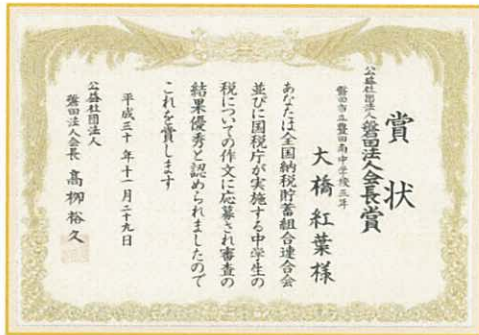 賞状
公益社団法人磐田法人会長賞
磐田市立豊田南中学校三年
大橋紅葉様
あなたは全国納税貯蓄組合連合会
並びに国税庁が実施する中学生の
税についての作文に応募され審査の
結果優秀と認められましたので
これを賞します
平成三十年十一月二十九日
公益社団法人
磐田法人会長 髙栁裕久